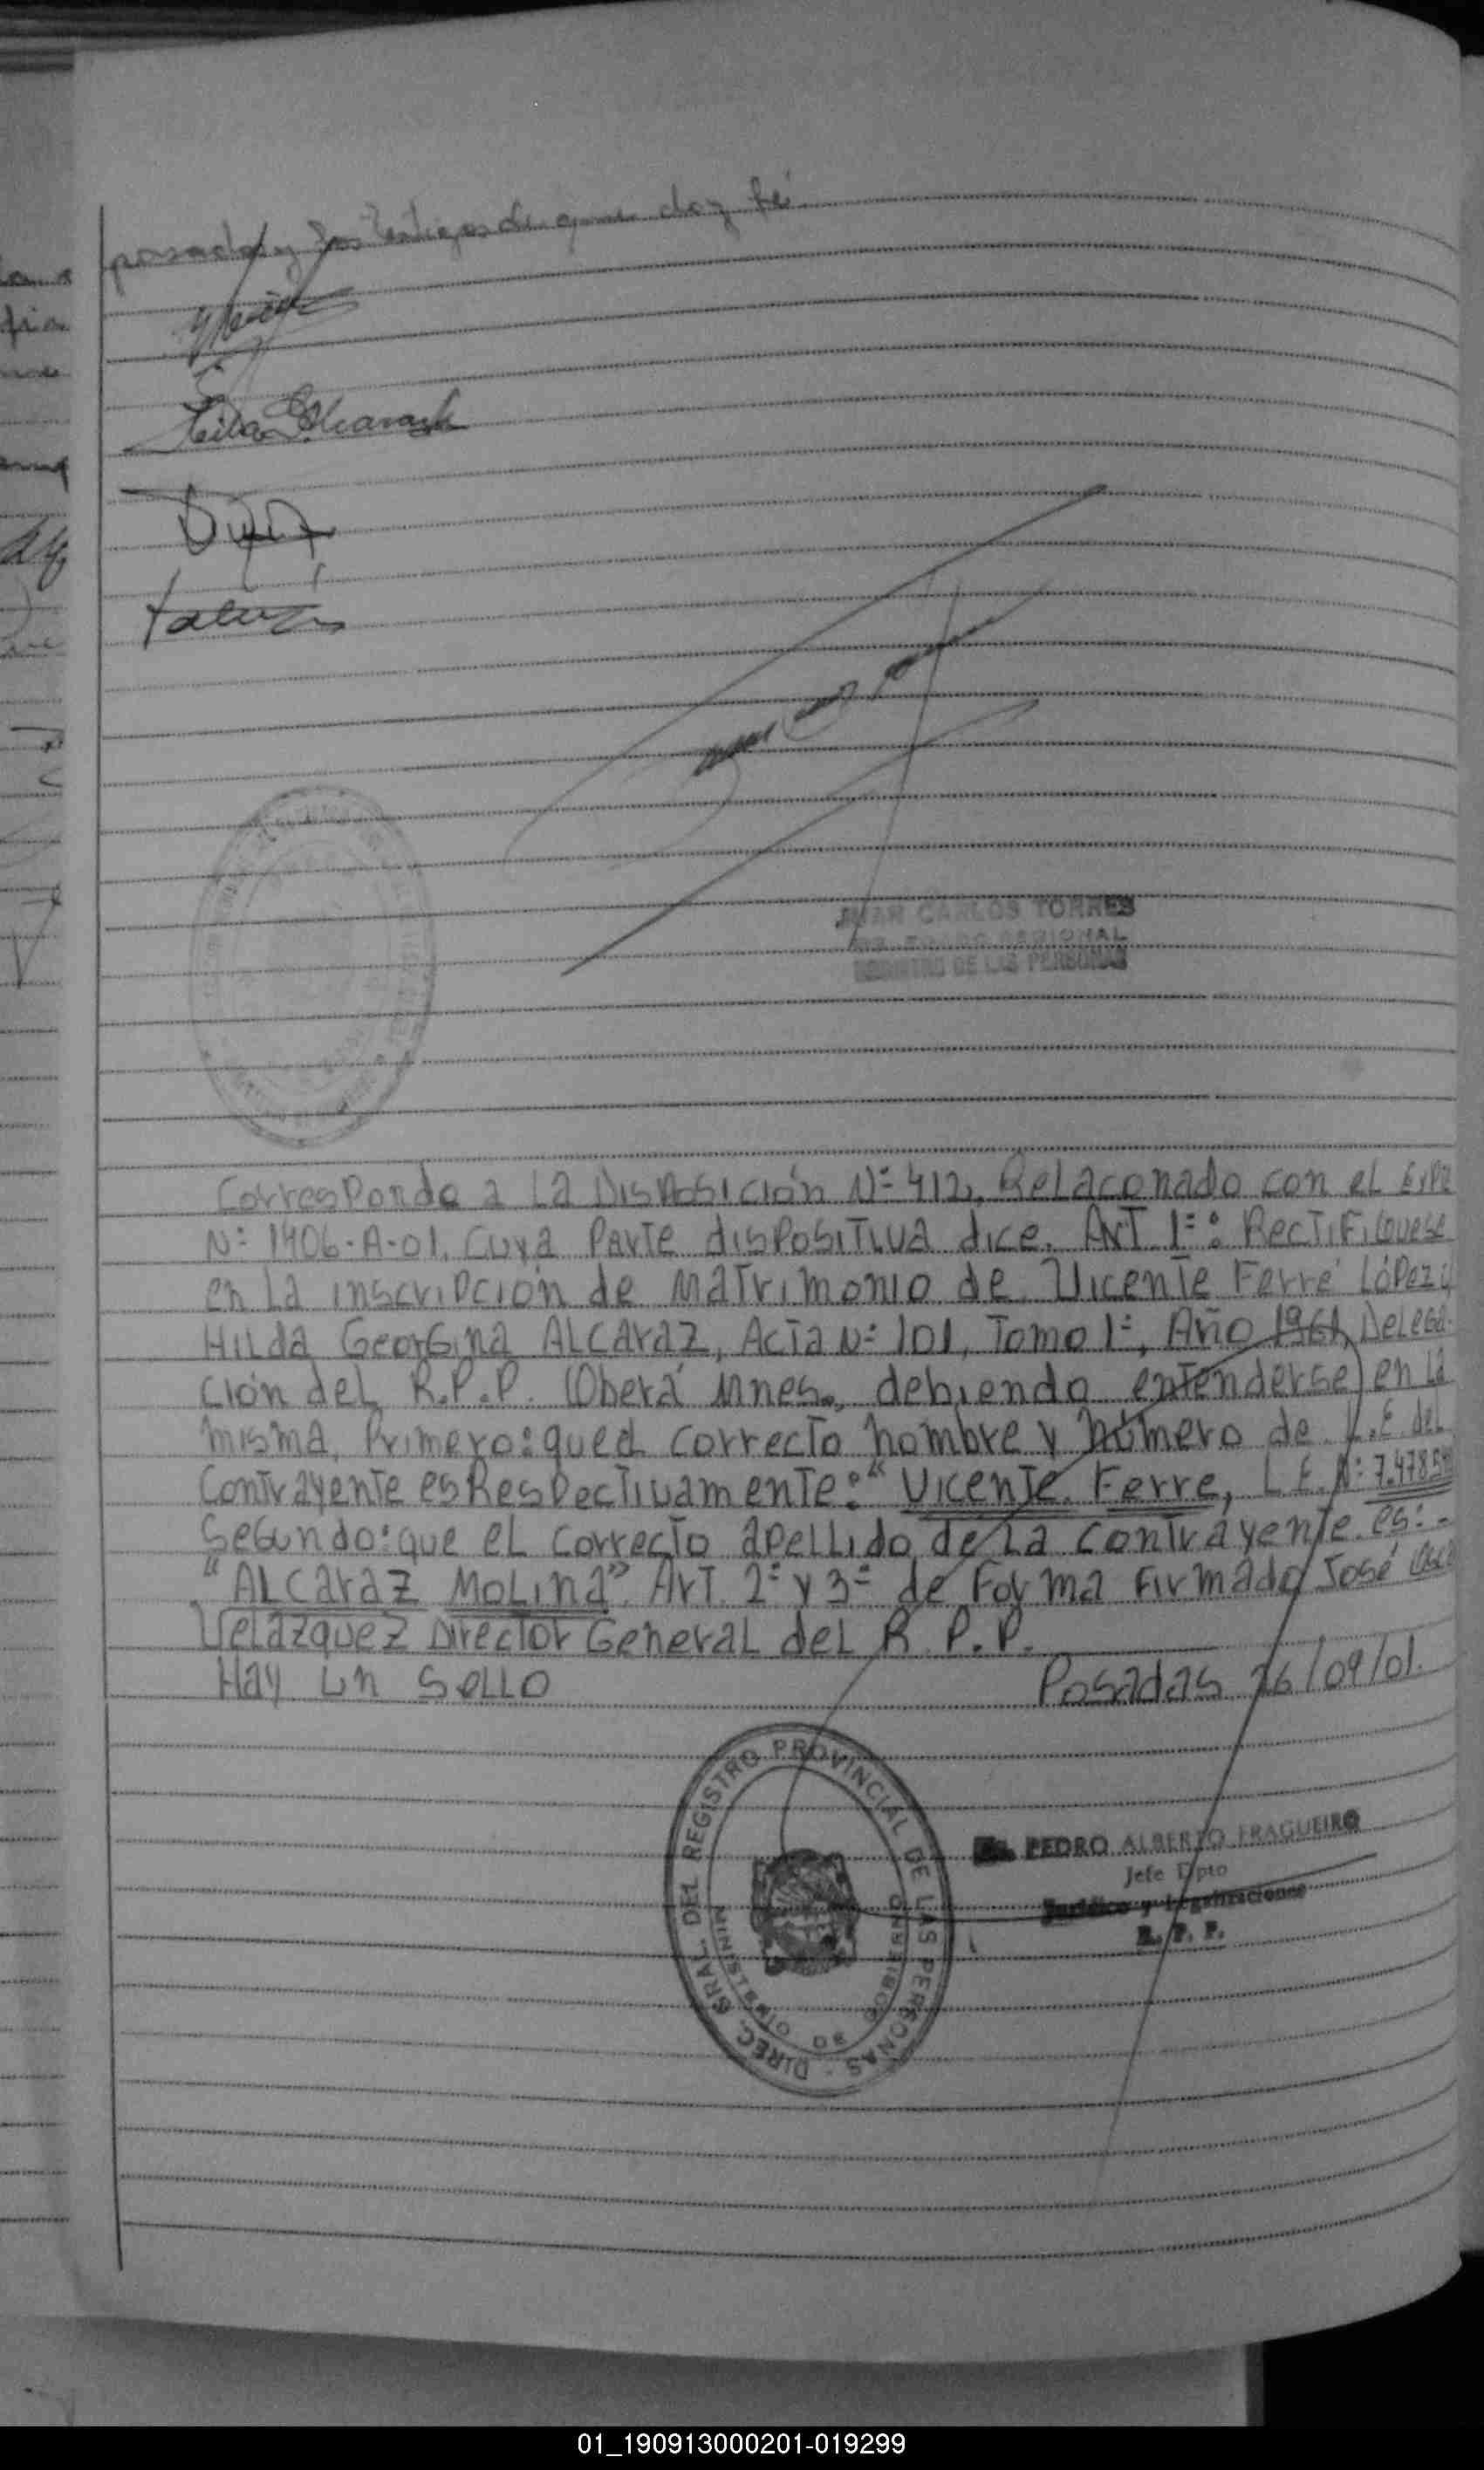 posada y los testigos de que doy fé
Hilda G Alcaraz
JUAN CARLOS TORRES
REGISTRO DE LAS PERSONAS
Corresponde a La Disposición N° 412, Relaconado con el Expte
N° 1406-A-01. Cuya Parte dispositiva dice. Art 1°: Rectifíquese
en La inscripción de Matrimonio de Vicente Ferré López y
Hilda Georgina ALCaraz, Acta N° 101, Tomo 1°, Año 1961, Delega-
ción del R.P.P. Oberá Mnes., debiendo entenderse en La
misma, Primero: qued correcto nombre y número de L.E del
Contrayente es Respectivamente: "Vicente Ferre, L.E. N°
Segundo: que el correcto apellido de La contrayente es:.
"ALCaraz Molina". Art. 2° y 3° de Forma Firmado José
Velázquez Director General del R.P.P.
Hay un Sello Posadas 26/09/01.
DIREC. GRAL. DEL REGISTRO PROVINCIAL DE LAS PERSONAS -
MINISTERIO DE GOBIERNO
PEDRO ALBERTO FRAGUEIRO
Jefe Dpto
Jurídico y Legalizaciones
R. P. P.
01_190913000201-019299